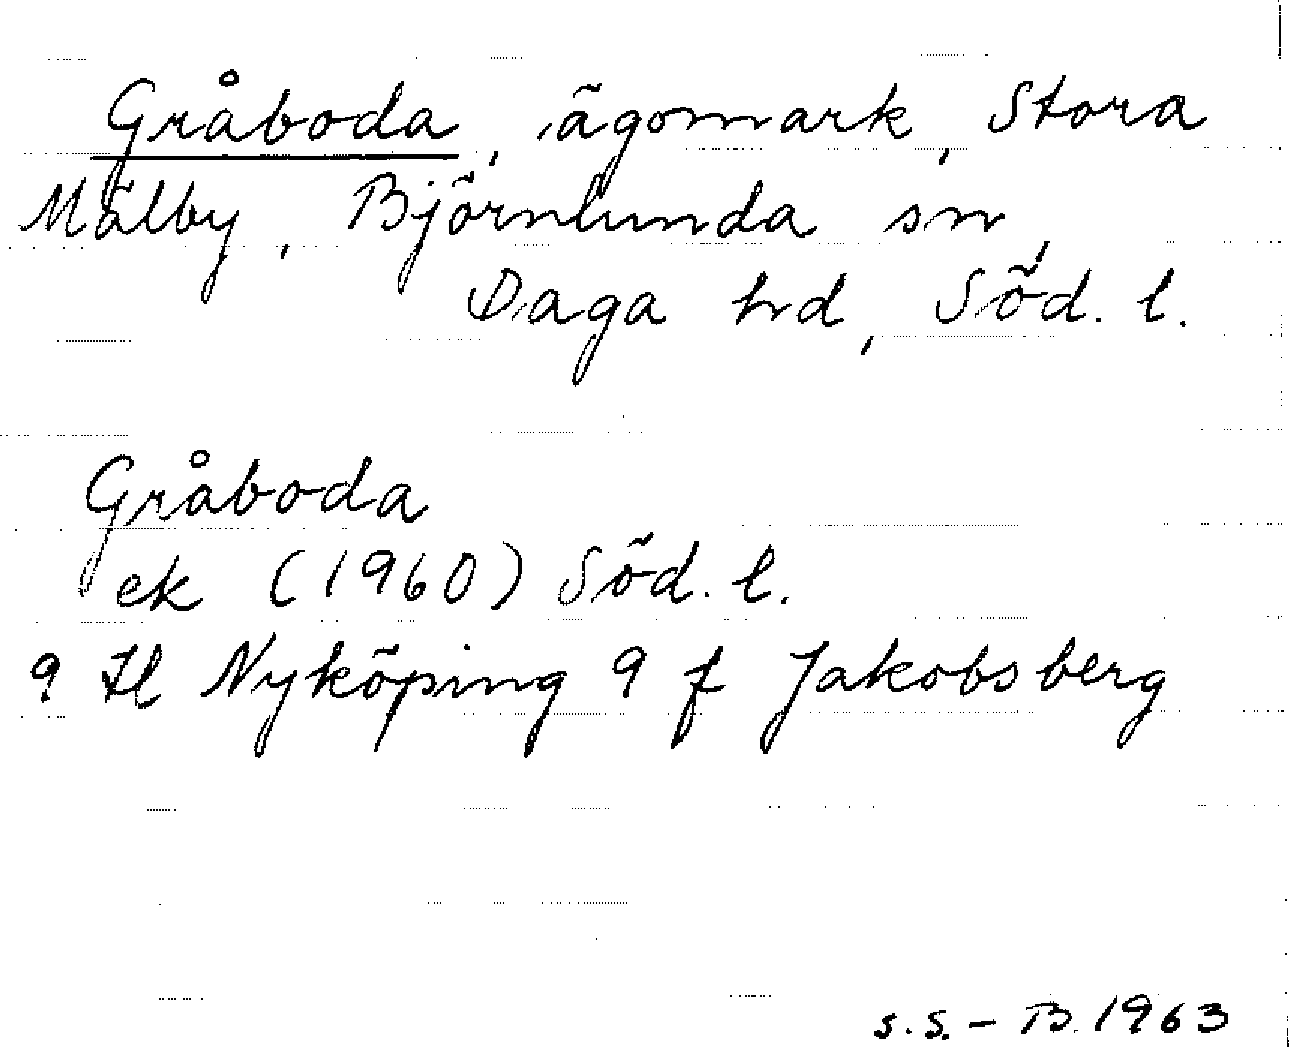 Gråboda, ägomark, Stora
Mälby, Björnlunda sn,
Daga hd, Söd. l.
Gråboda
ek (1960) Söd. l.
9 Il Nyköping 9 f Jakobsberg
s.S. – B. 1963